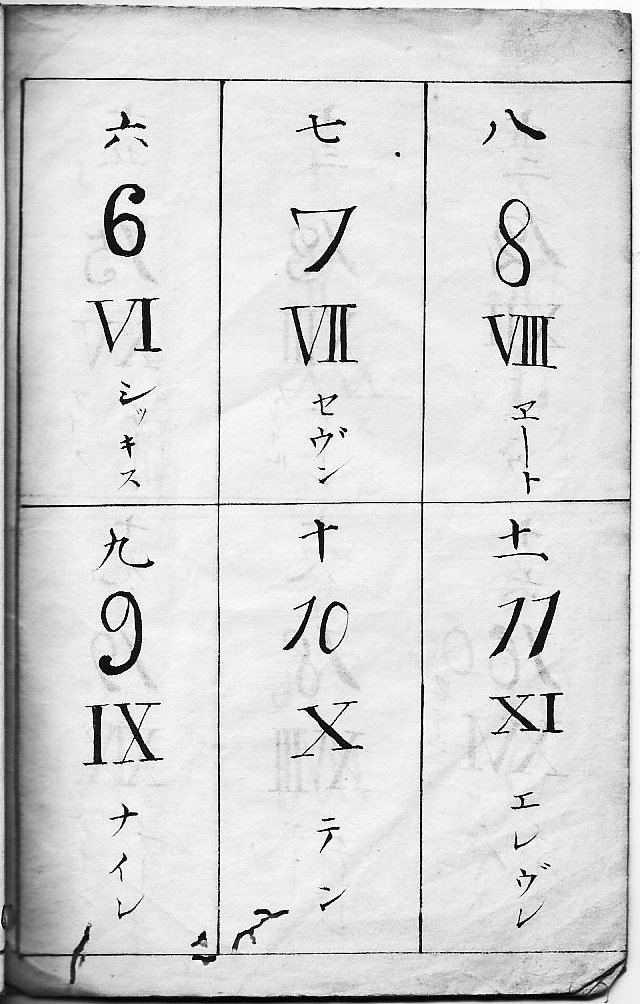 六
6
VI
シッキス
七
7
VII
セヴン
八
8
VIII
ヱート
九
9
IX
ナイレ
十
10
X
テン
十一
11
XI
エレヴレ